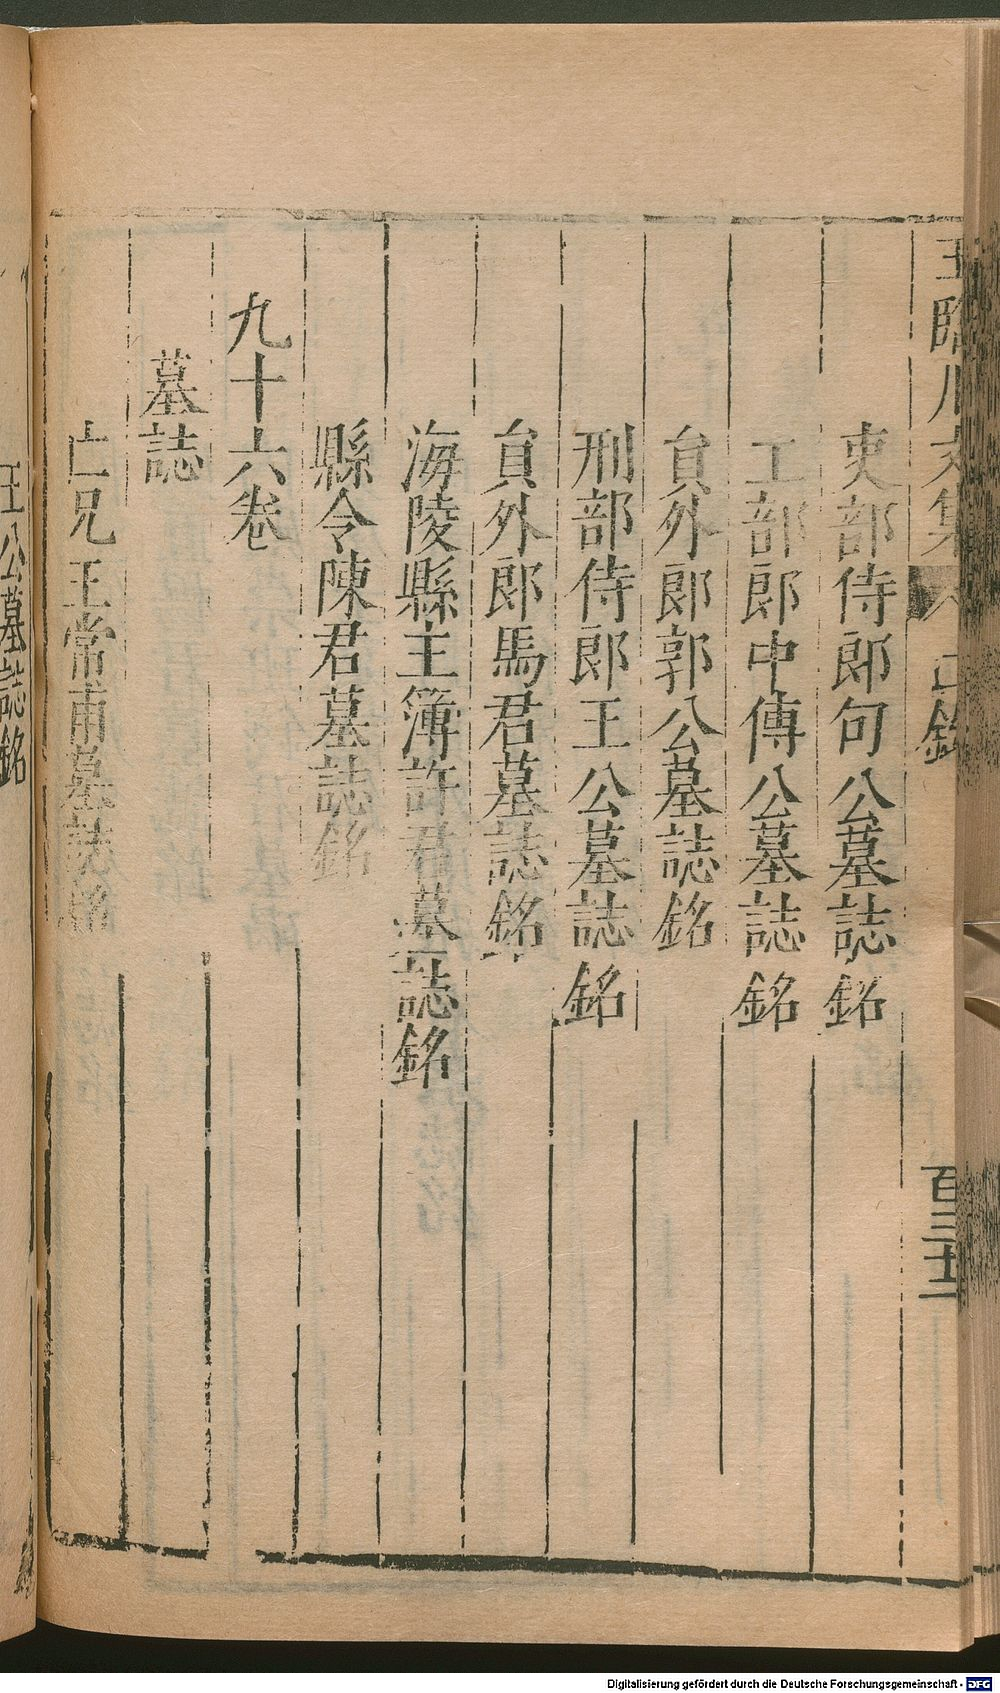 王臨川文集 目錄
百三十一
吏部侍郎句公墓誌銘
工部郎中傅公墓誌銘
貟外郎郭公墓誌銘
刑部侍郎王公墓誌銘
貟外郎馬君墓誌銘
海陵縣主簿許君墓誌銘
縣令陳君墓誌銘
九十六卷
墓誌
亡兄王常甫墓誌銘
王公墓誌銘
Digitalisierung gefördert durch die Deutsche Forschungsgemeinschaft - DFG